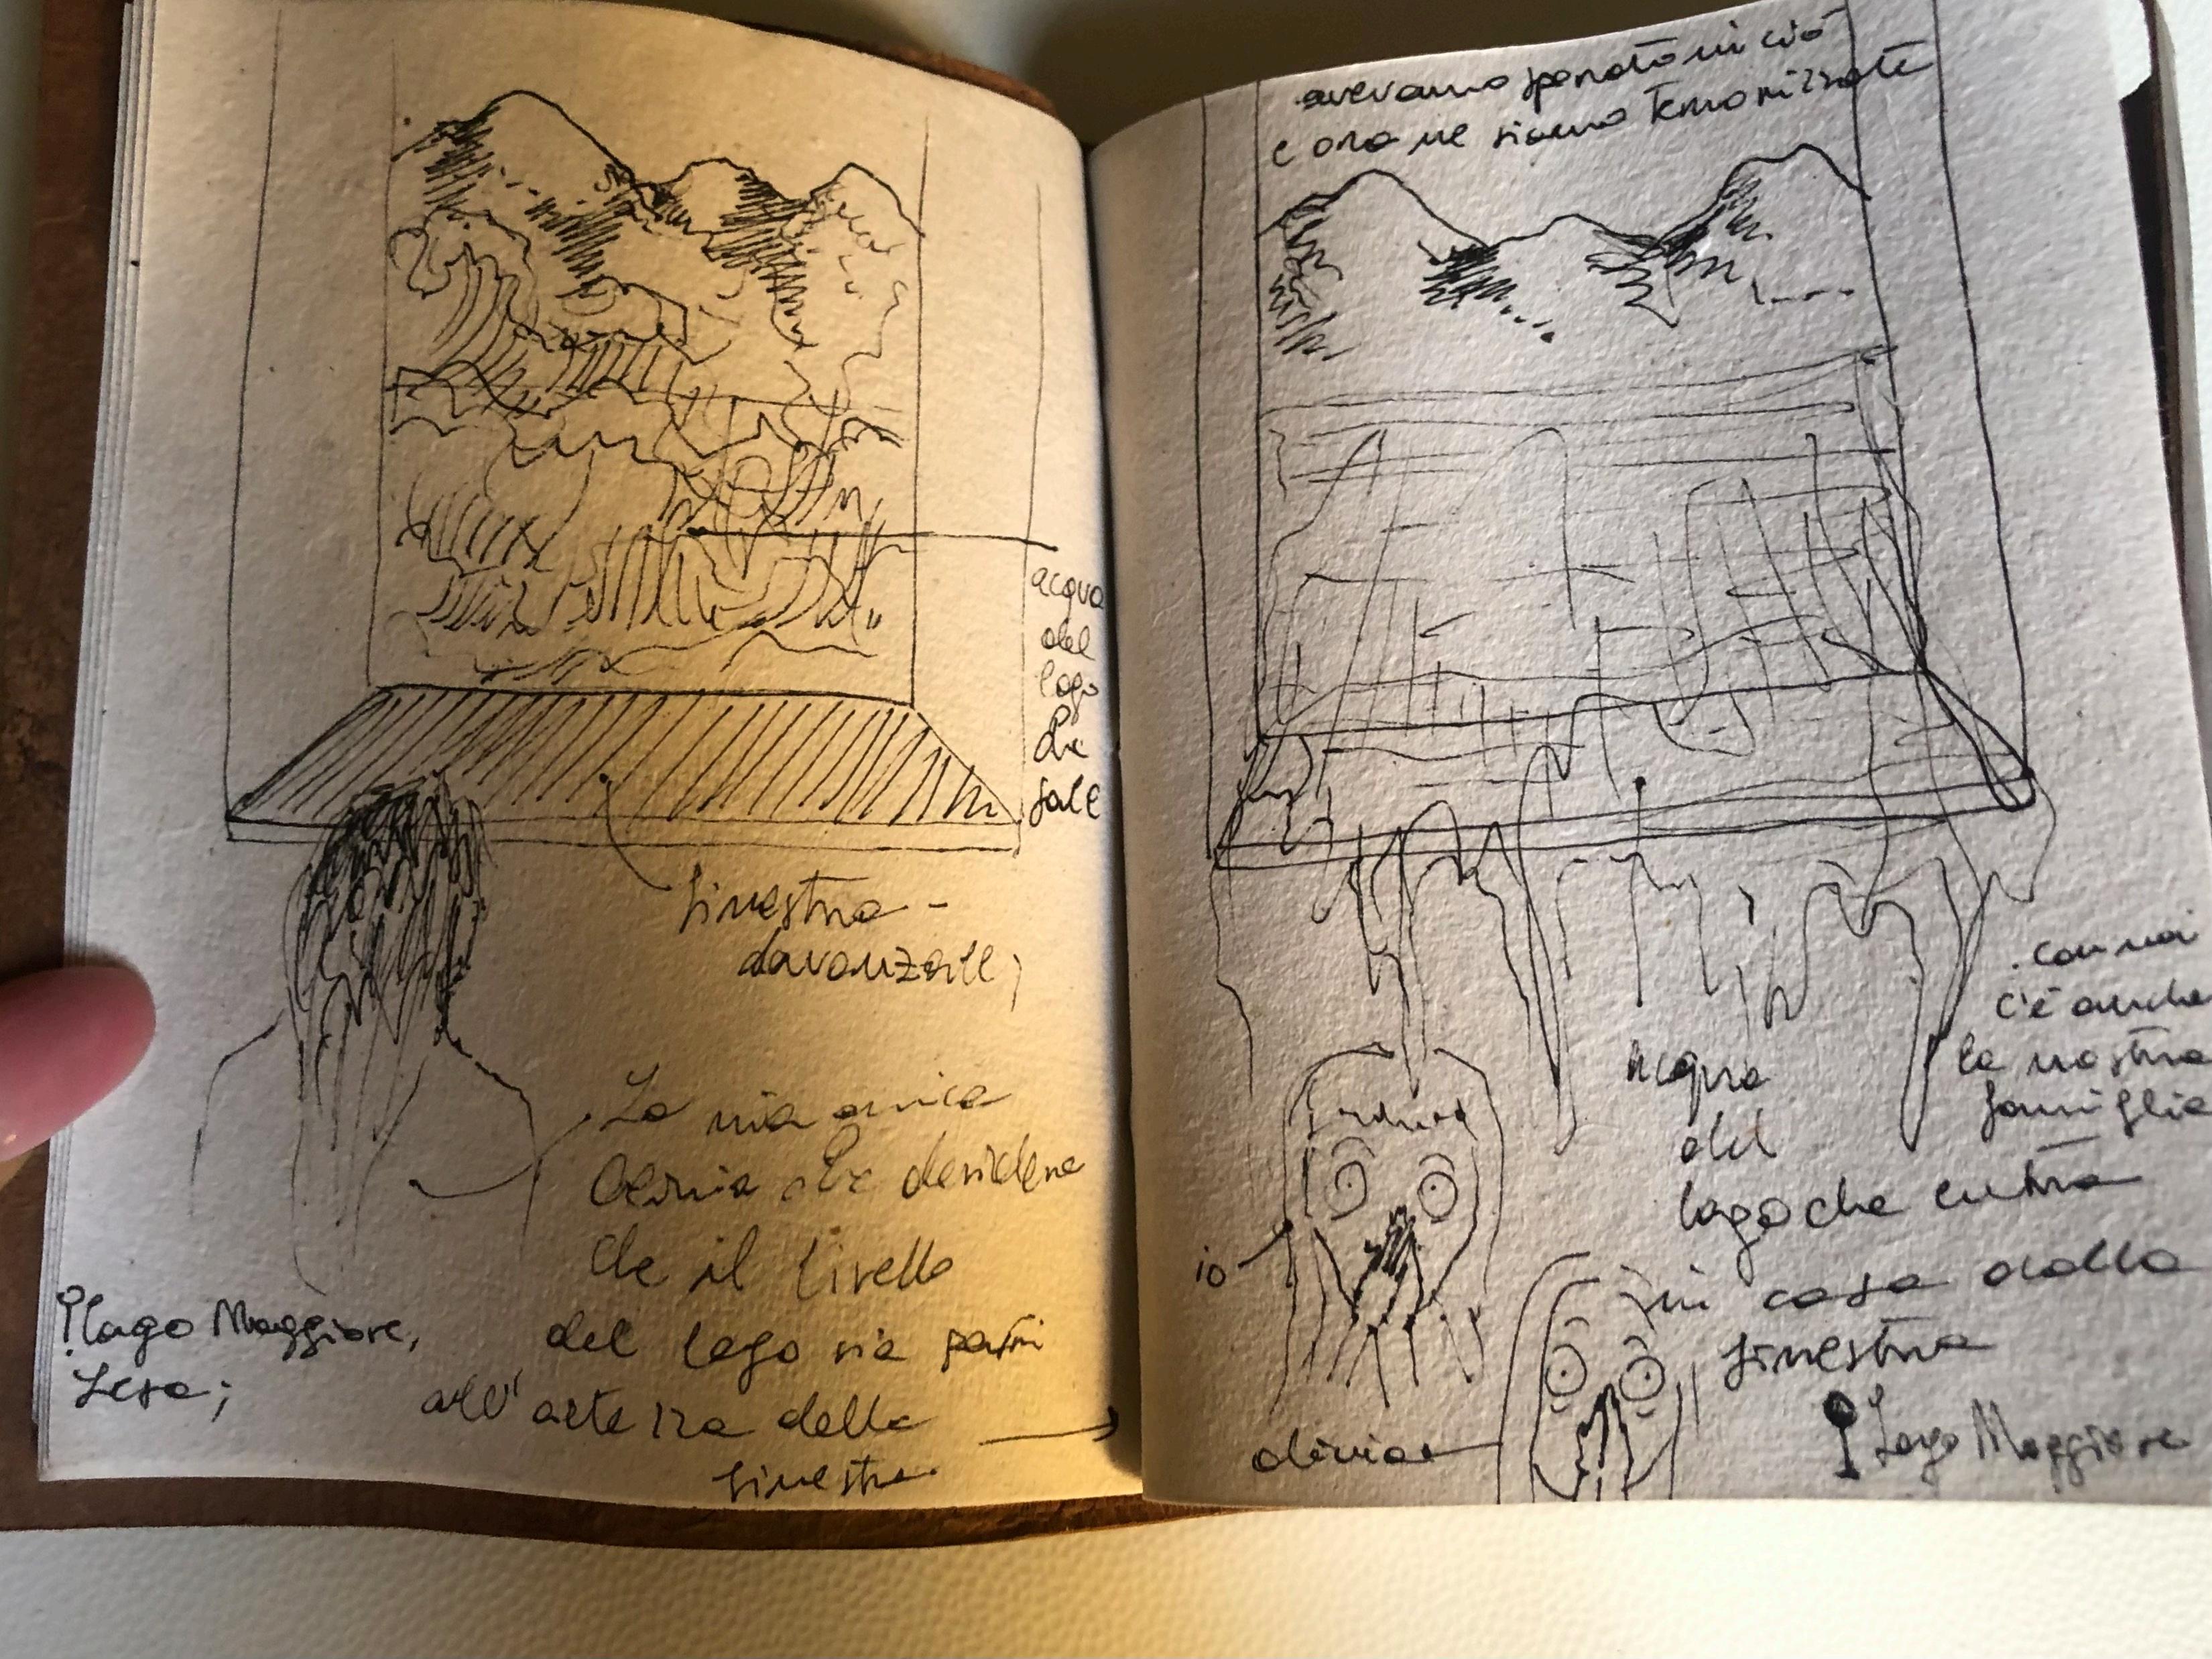 acqua
del
lago
che
sale
finestra -
davanzale;
La mia amica
Olivia che desidera
che il livello
del lago sia pari
all'altezza della
finestra.
Lago Maggiore,
Lesa;
avevamo sperato in ciò
e ora ne siamo terrorizzate
. con noi
c'è anche
la nostra
famiglia
acqua
del
lago che entra
in casa dalla
finestra
io
olivia
Lago Maggiore